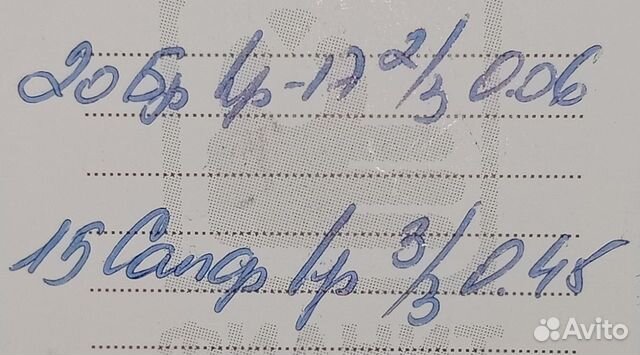 20 Бр Кр-17 2/3 0.06
15 Сапф Кр 3/3 0.48
Avito